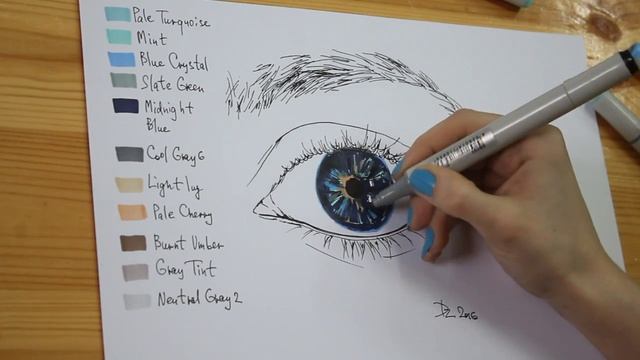 Pale Turquoise
Mint
Blue Crystal
Slate Green
Midnight
Blue
Cool Gray 6
Light Ivy
Pale Cherry
Burnt Umber
Gray Tint
Neutral Gray 2
2016